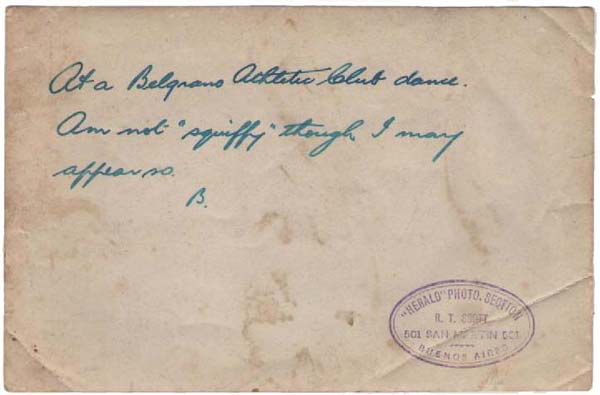 At a Belgrano Athletic Club dance.
Am not "squiffy" though I may
appear so.
B.
"HERALD" PHOTO. SECTION
R. T. SCOTT
501 SAN MARTIN 561
BUENOS AIRES